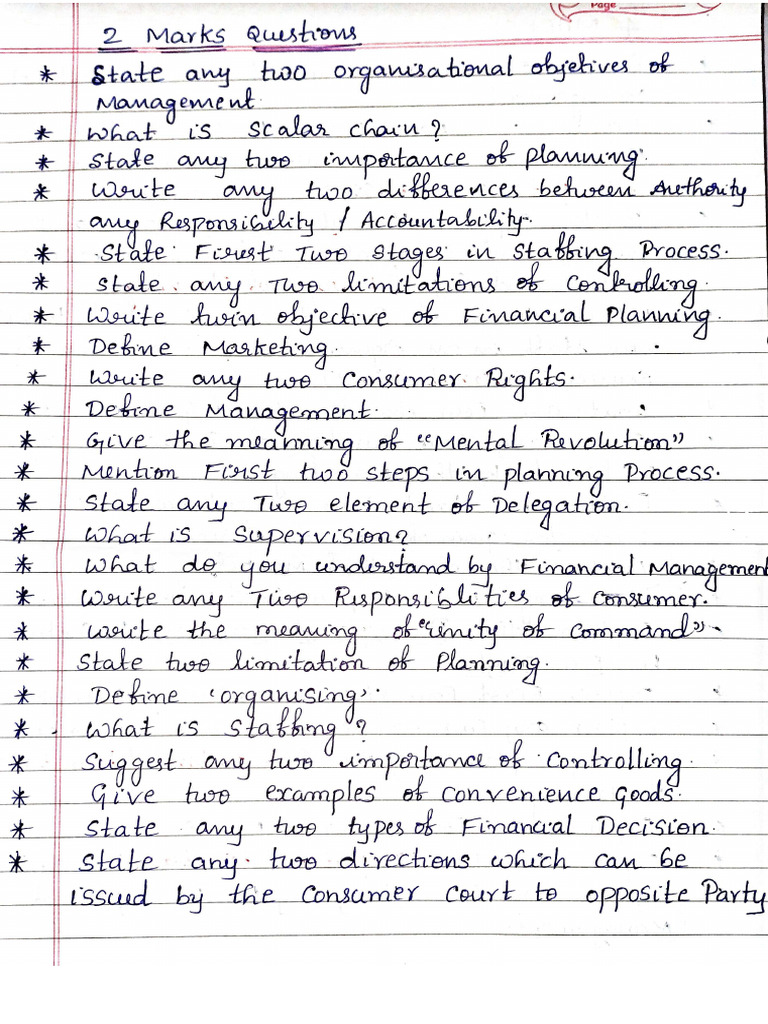 Page
2 Marks Questions
* State any two organisational objetives of
Management
* What is scalar chain?
* State any two importance of planning.
* Write any two differences between Authority
any Responsibility / Accountability.
* State First Two Stages in Staffing Process.
* State any Two limitations of controlling.
* Write twin objective of Financial Planning.
* Define Marketing.
* Write any two Consumer Rights.
* Define Management.
* Give the meanning of "Mental Revolution"
* Mention First two steps in planning Process.
* State any Two element of Delegation.
* What is Supervision?
* What do you understand by Financial Management
* Write any Two Responsiblities of consumer.
* Write the meaning of "unity of command".
* State two limitation of Planning.
* Define 'organising'.
* What is Staffing?
* Suggest any two importance of controlling.
* Give two examples of convenience Goods.
* State any two types of Financial Decision.
* State any two directions which can be
issued by the consumer court to opposite Party